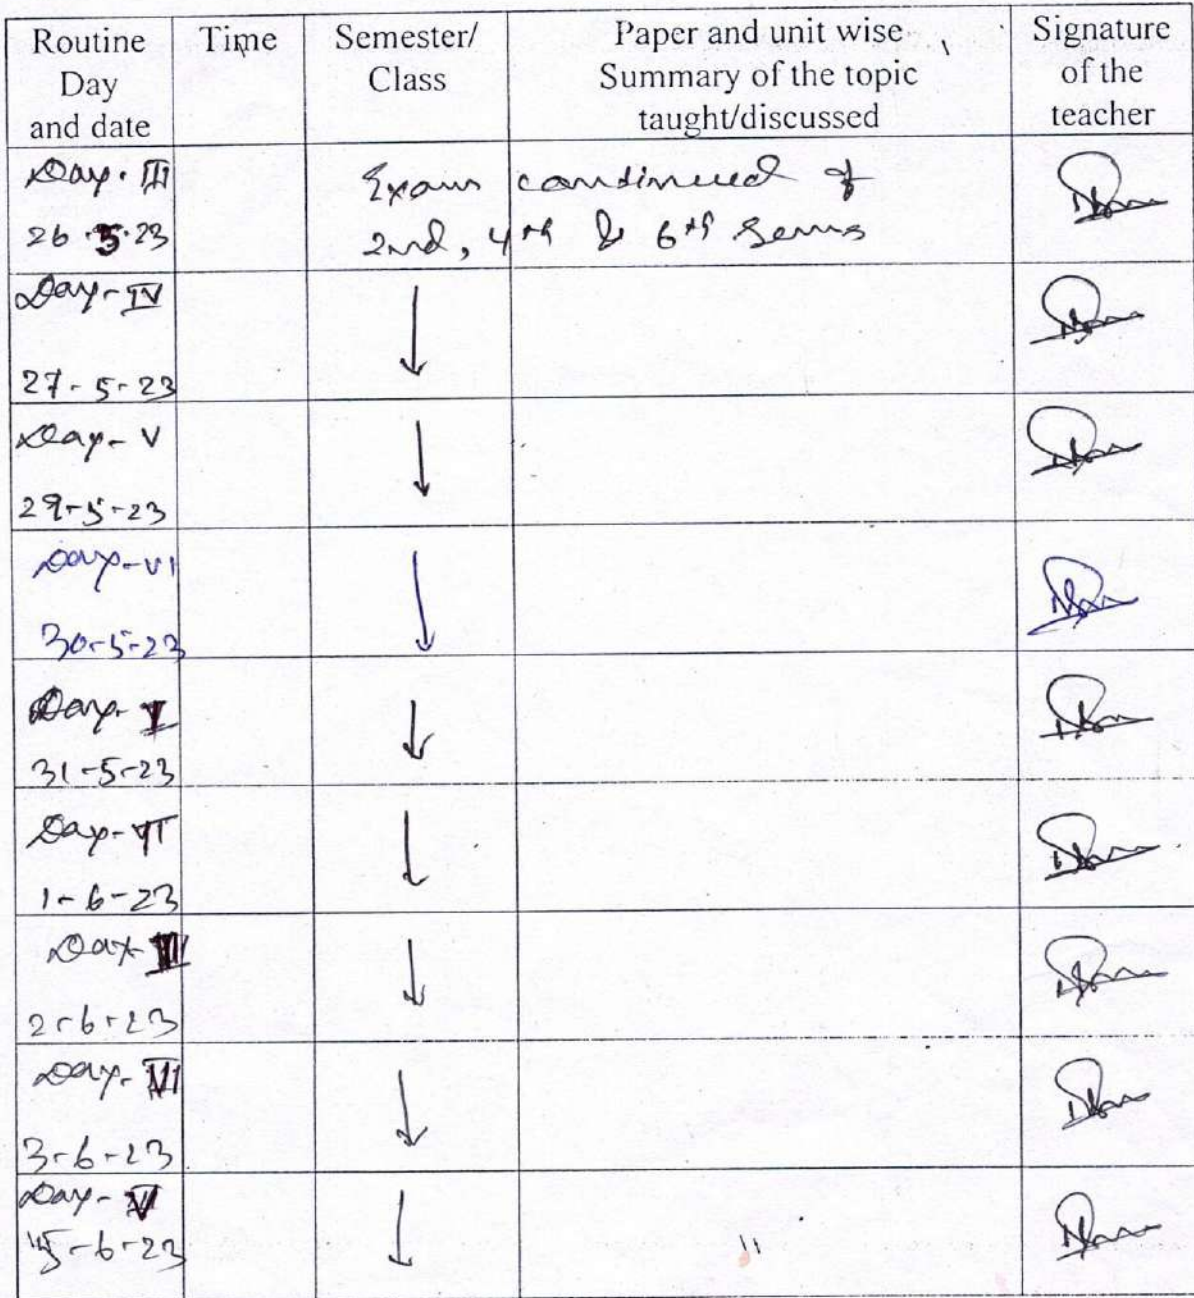 Routine Day and date Time Semester/ Class Paper and unit wise Summary of the topic taught/discussed Signature of the teacher
Day. III
26.5.23
Exam continued of
2nd, 4th & 6th Sems
Day-IV
27-5-23
Day-V
29-5-23
Day-VI
30-5-23
Day-I
31-5-23
Day-
1-6-23
Day-III
2-6-23
Day-
3-6-23
Day-V
5-6-23
"